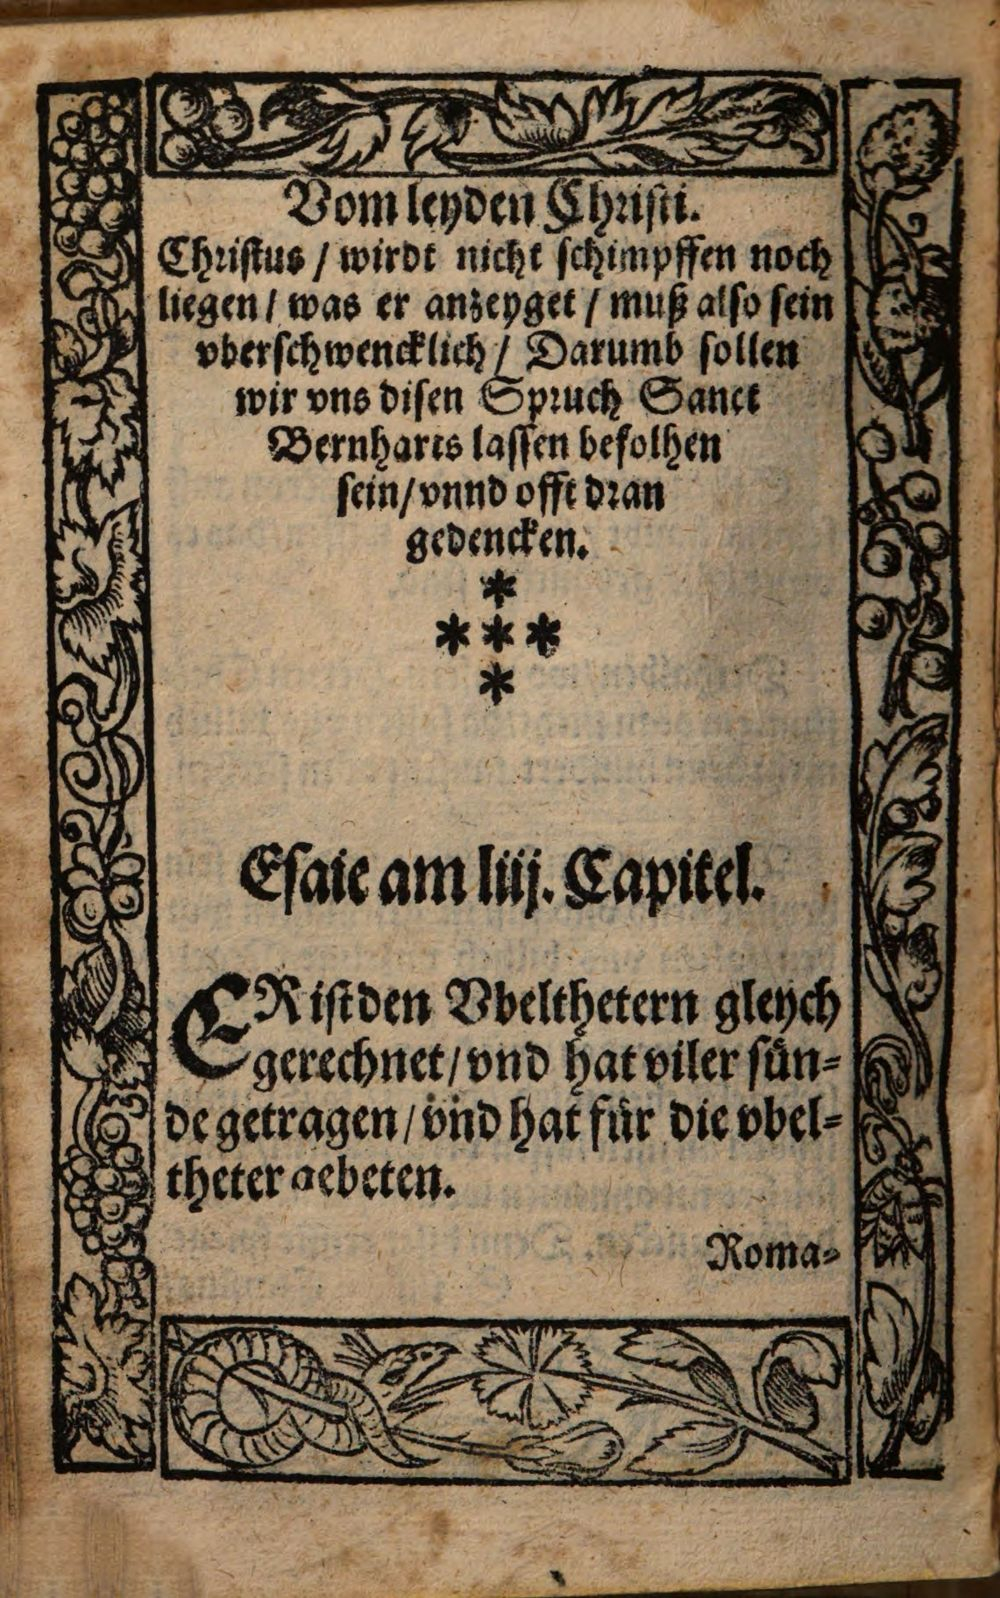 Vom leyden Christi.
Christus / wirdt nicht schimpffen noch
liegen / was er anzeyget / muß also sein
vberschwencklich / Darumb sollen
wir vns disen Spruch Sanct
Bernharts lassen befolhen
sein / vnnd offt dran
gedencken.
*
* * *
*
Esaie am liij. Capitel.
ER ist den Vbelthetern gleych
gerechnet / vnd hat viler sün-
de getragen / vnd hat für die vbel-
theter gebeten.
Roma-